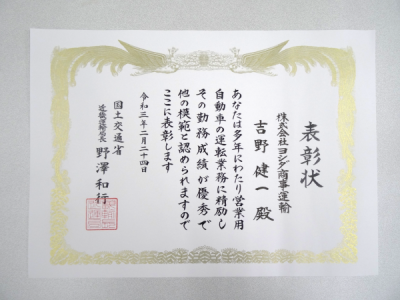 表彰状
株式会社ヨシダ商事運輸
吉野健一殿
あなたは多年にわたり営業用
自動車の運転業務に精励し
その勤務成績が優秀で
他の模範と認められますので
ここに表彰します
令和三年二月二十四日
国土交通省
近畿運輸局長 野澤和行